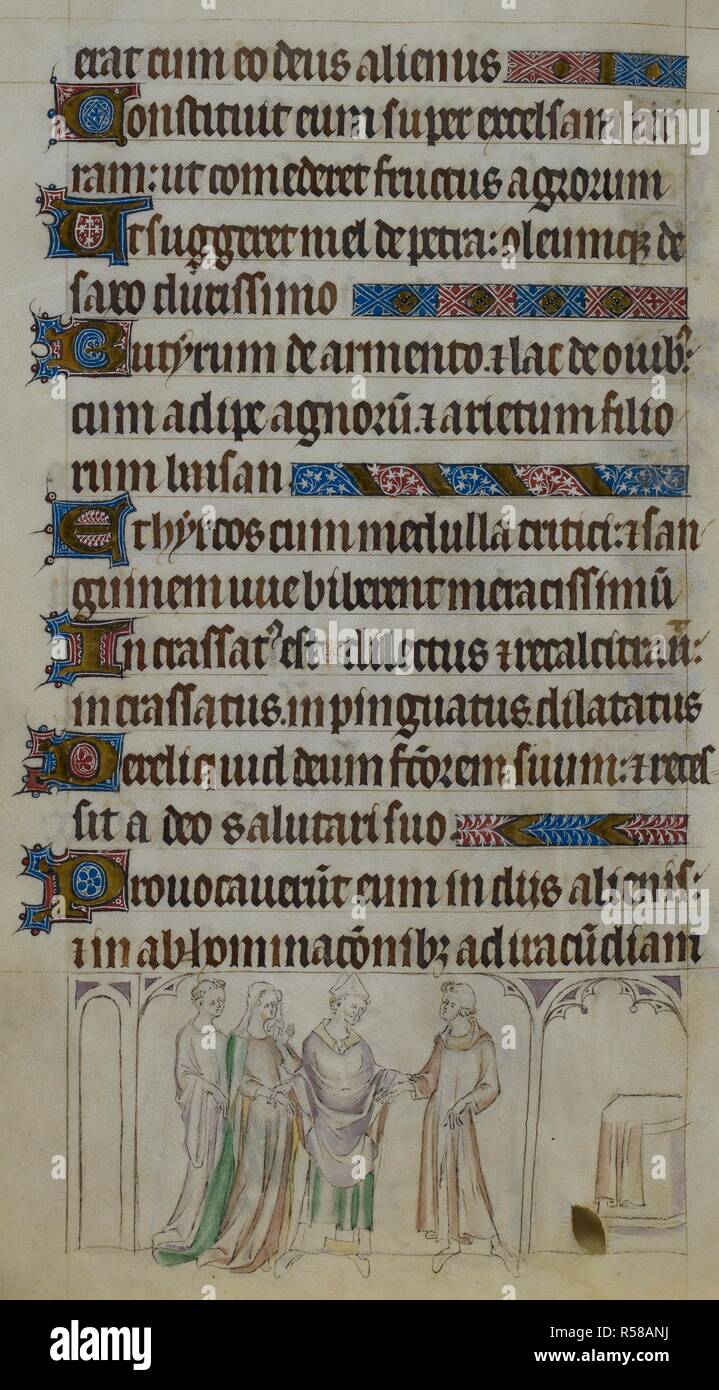 erat cum eo deus alienus
Constituit eum super excelsam ter
ram: ut comederet fructus agrorum
Ut suggeret mel de petra: oleumq; de
saxo durissimo
Butyrum de armento. ⁊ lac de ouibꝰ:
cum adipe agnorū. ⁊ arietum filio
rum basan
Et hyrcos cum medulla tritici: ⁊ san
guinem uue biberent meracissimū
Incrassatꝰ est dilectus ⁊ recalcitrauit:
incrassatus. inpinguatus. dilatatus
Dereliquid deum fc̄orem suum: ⁊ reces-
sit a deo salutari suo
Prouocauerūt eum in dijs alienis:
⁊ in abhominac̄onibꝫ ad iracūdiam
alamy
Image ID: R58ANJ
www.alamy.com